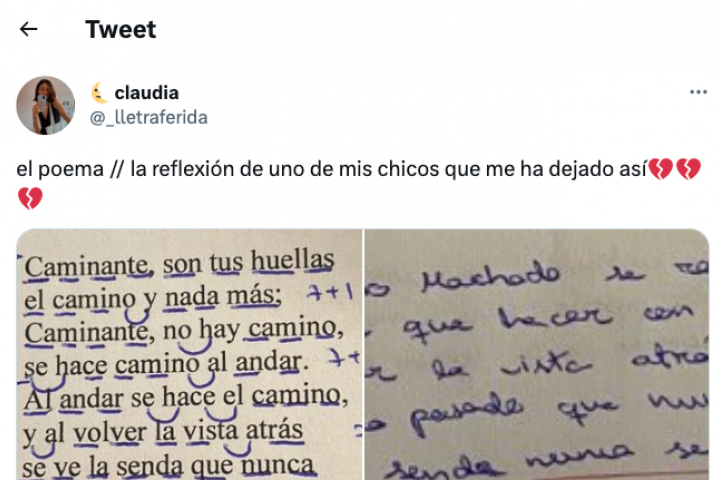 Tweet
claudia
@_lletraferida
el poema // la reflexión de uno de mis chicos que me ha dejado así
Caminante, son tus huellas
el camino y nada más; 7+1
Caminante, no hay camino,
se hace camino al andar. 7+
Al andar se hace el camino,
y al volver la vista atrás
se ve la senda que nunca
o Machado se
que hacer con
r la vista atrá
o pasado que nu
senda nunca se